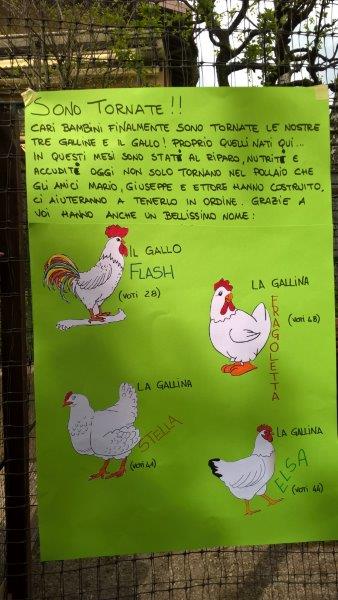 SONO TORNATE!!
CARI BAMBINI FINALMENTE SONO TORNATE LE NOSTRE
TRE GALLINE E IL GALLO! PROPRIO QUELLI NATI QUI...
IN QUESTI MESI SONO STATI AL RIPARO, NUTRITI E
ACCUDITI OGGI NON SOLO TORNANO NEL POLLAIO CHE
GLI AMICI MARIO, GIUSEPPE E ETTORE HANNO COSTRUITO,
CI AIUTERANNO A TENERLO IN ORDINE. GRAZIE A
VOI HANNO ANCHE UN BELLISSIMO NOME:
IL GALLO
FLASH
(VOTI 28)
LA GALLINA
FRAGOLETTA
(VOTI 48)
LA GALLINA
STELLA
(VOTI 41)
LA GALLINA
ELSA
(VOTI 44)